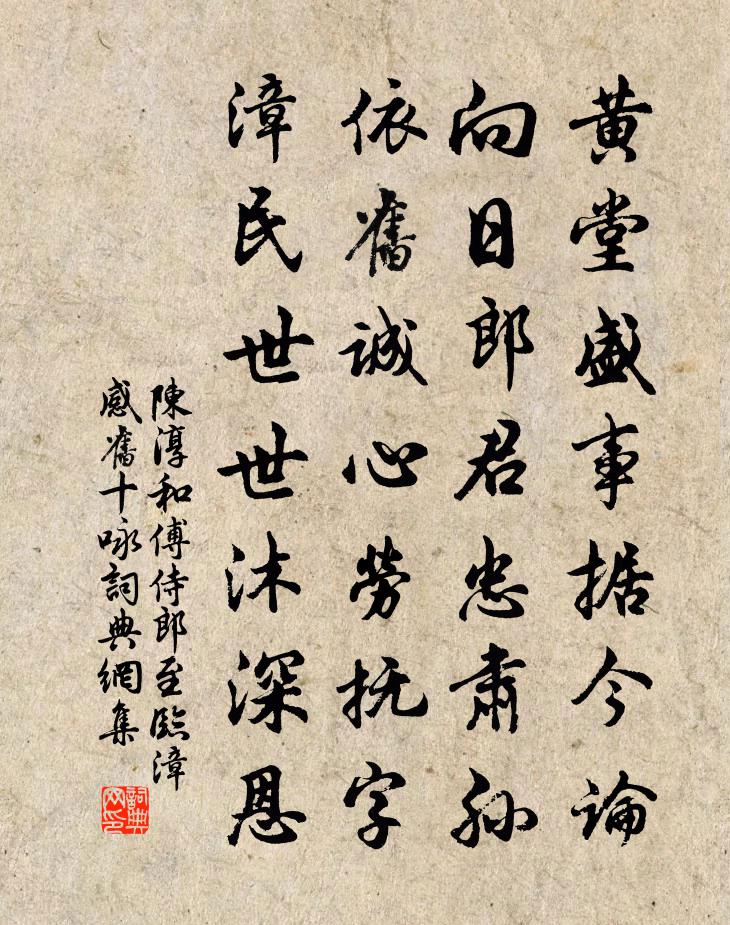 黄堂盛事据今論
向日郎君忠肅孫
依舊誠心勞抚字
漳民世世沐深恩
陳淳和傅侍郎至臨漳
感舊十咏詞典網集
詞典网印